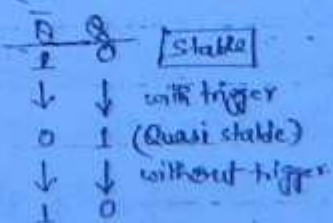 Q̅ Q
1 0 Stable
↓ ↓ with trigger
0 1 (Quasi stable)
↓ ↓ without trigger
1 0